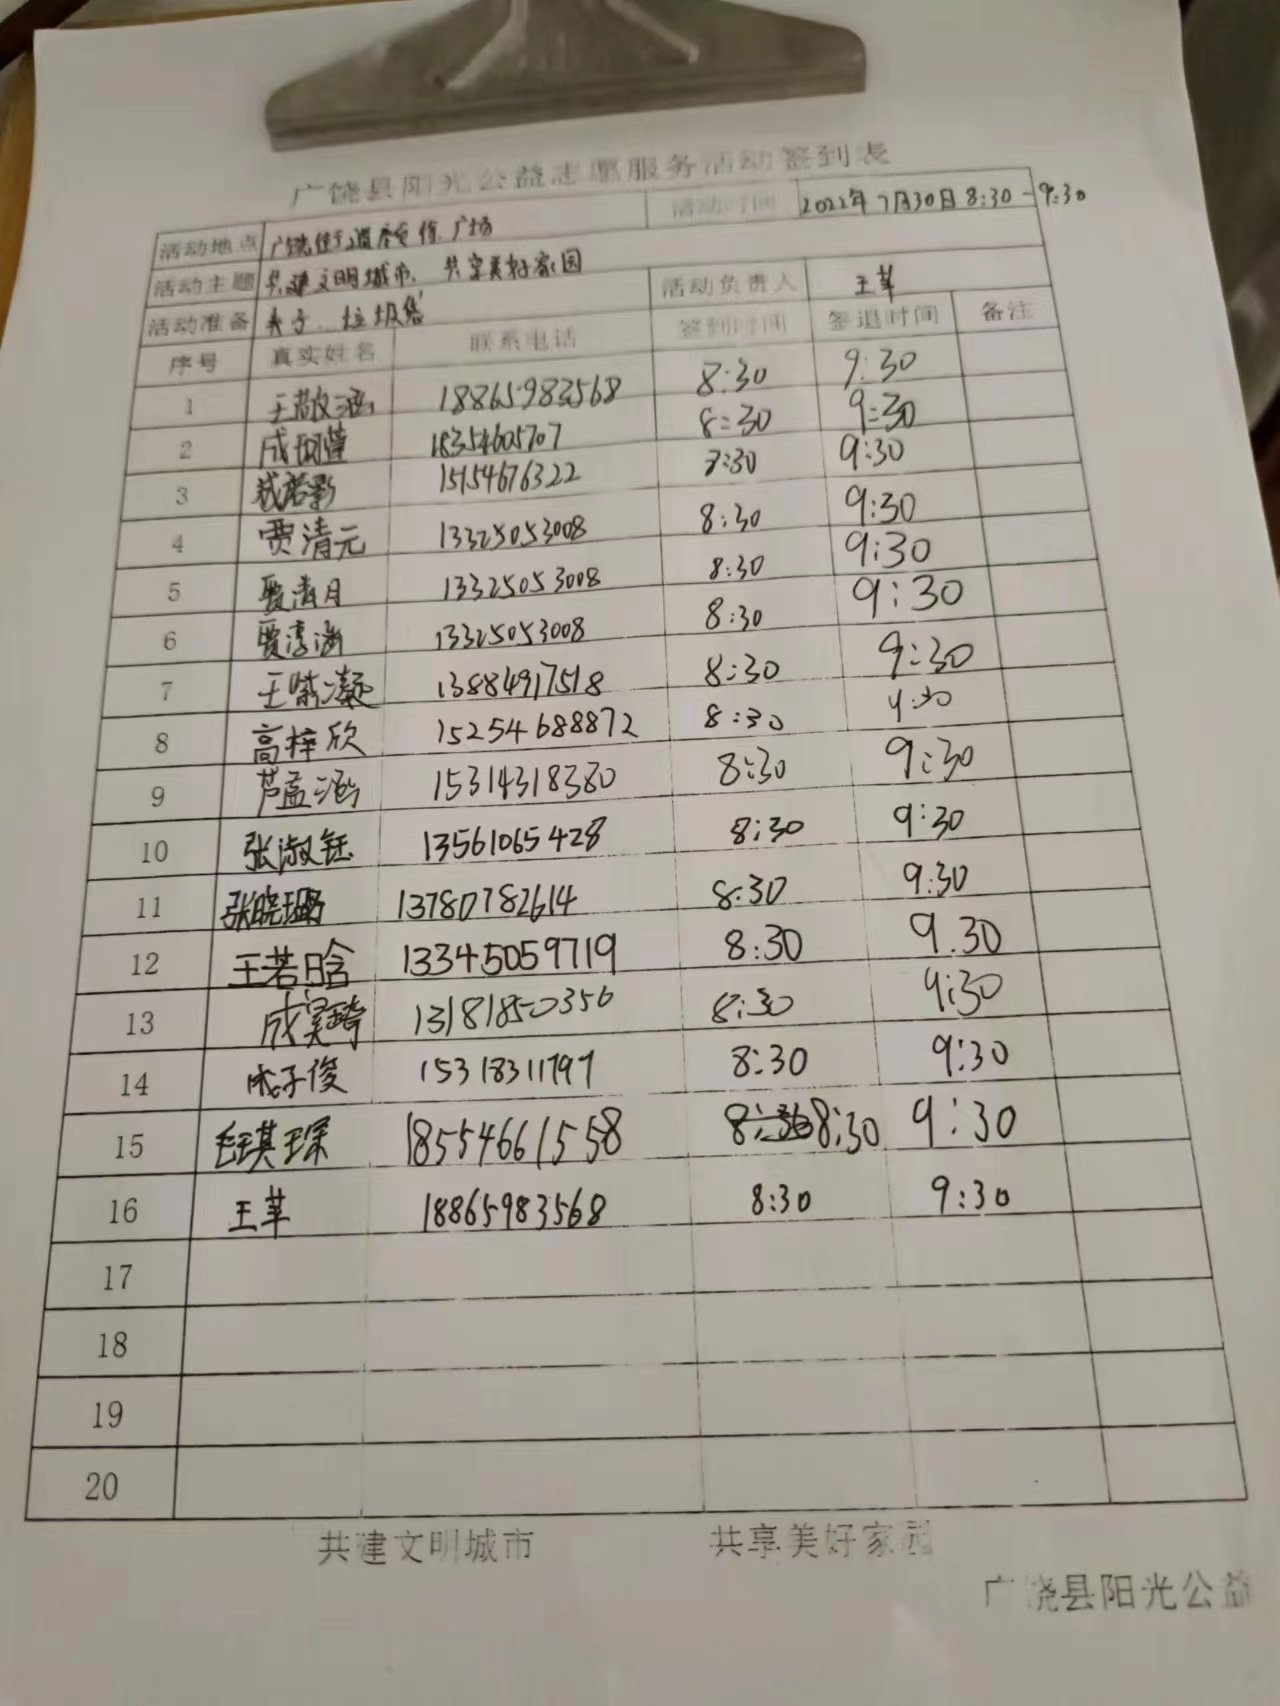 广饶县阳光公益志愿服务活动签到表
活动地点 广饶街道 广场 活动时间 2022年7月30日8:30-9:30
活动主题 共建文明城市、共享美好家园
活动准备 夹子、垃圾袋 活动负责人 王苹
序号 真实姓名 联系电话 签到时间 签退时间 备注
1 王敬涵 18865983568 8:30 9:30
2 18354605707 8:30 9:30
3 15154676322 7:30 9:30
4 贾清元 13325053008 8:30 9:30
5 贾清月 13325053008 8:30 9:30
6 贾淳涵 13325053008 8:30 9:30
7 王紫凝 13884917518 8:30 9:30
8 高梓欣 15254688872 8:30 9:30
9 芦孟涵 15314318380 8:30 9:30
10 张淑钰 13561065428 8:30 9:30
11 张晓璐 13780782614 8:30 9:30
12 王若晗 13345059719 8:30 9.30
13 成昊琦 13181850356 8:30 9:30
14 成子俊 15318311797 8:30 9:30
15 毛琪琛 18554661558 8:30 8:30 9:30
16 王苹 18865983568 8:30 9:30
17
18
19
20
共建文明城市 共享美好家园
广饶县阳光公益